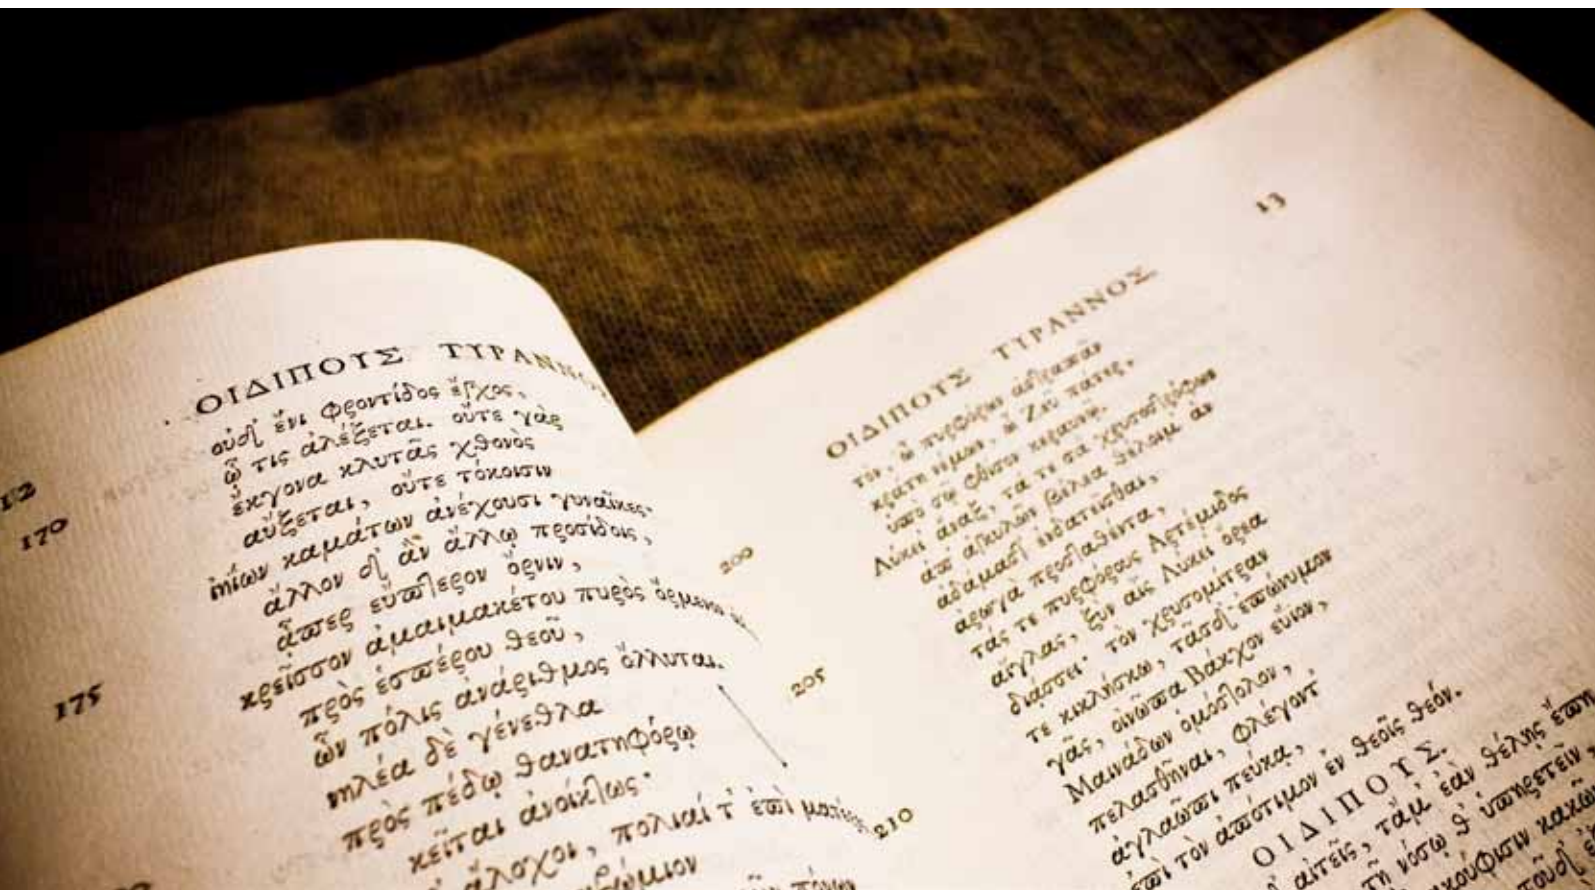 12
ΟΙΔΙΠΟΥΣ ΤΥΡΑΝΝΟ
οὐδ' ἔνι φροντίδος ἔγχος,
170 ᾧ τις ἀλέξεται. οὔτε γὰρ
ἔκγονα κλυτᾶς χθονὸς
αὔξεται, οὔτε τόκοισιν
ἰηίων καμάτων ἀνέχουσι γυναῖκες·
ἄλλον δ' ἂν ἄλλῳ προσίδοις,
175 ἅπερ εὔπτερον ὄρνιν,
κρεῖσσον ἀμαιμακέτου πυρὸς ὄρμενον
πρὸς ἑσπέρου θεοῦ,
ὧν πόλις ἀνάριθμος ὄλλυται.
νηλέα δὲ γένεθλα
πρὸς πέδῳ θανατηφόρῳ
κεῖται ἀνοίκτως·
ἄλοχοι, πολιαί τ' ἐπὶ ματέρες
13
ΟΙΔΙΠΟΥΣ ΤΥΡΑΝΝΟΣ
τόν, ὦ πυρφόρων ἀστραπᾶν
200 κράτη νέμων, ὦ Ζεῦ πάτερ,
ὑπὸ σῷ φθίσον κεραυνῷ.
Λύκει' ἄναξ, τά τε σὰ χρυσοστρόφων
ἀπ' ἀγκυλῶν βέλεα θέλοιμ' ἂν
205 ἀδάμαστ' ἐνδατεῖσθαι,
ἀρωγὰ προσταθέντα,
τάς τε πυρφόρους Ἀρτέμιδος
αἴγλας, ξὺν αἷς Λύκι' ὄρεα
διᾴσσει· τὸν χρυσομίτραν
210 τε κικλήσκω, τᾶσδ' ἐπώνυμον
γᾶς, οἰνῶπα Βάκχον εὔιον,
Μαινάδων ὁμόστολον,
πελασθῆναι, φλέγοντ'
ἀγλαῶπι πεύκᾳ,
ἐπὶ τὸν ἀπότιμον ἐν θεοῖς θεόν.
ΟΙΔΙΠΟΥΣ.
αἰτεῖς, τἄμ' ἐὰν θέλῃς ἔπη
τῇ νόσῳ θ' ὑπηρετεῖν
κακῶν